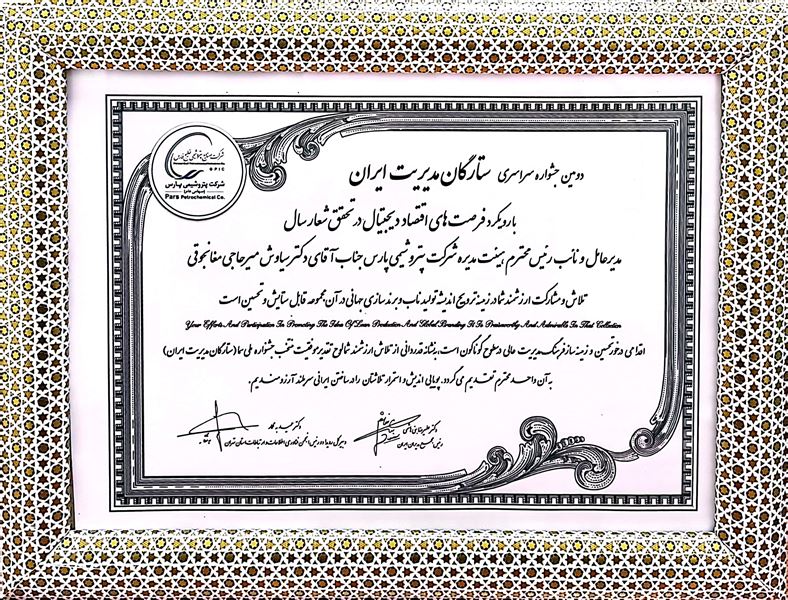 شرکت صنایع پتروشیمی خلیج فارس
PGPIC
شرکت پتروشیمی پارس
(سهامی عام)
Pars Petrochemical Co.
دومین جشنواره سراسری ستارگان مدیریت ایران
با رویکرد فرصت های اقتصاد دیجیتال در تحقق شعار سال
مدیرعامل و نائب رئیس محترم هیئت مدیره شرکت پتروشیمی پارس جناب آقای دکتر سیاوش میرحاجی مغانجوقی
تلاش و مشارکت ارزشمند شما در زمینه ترویج اندیشه تولید ناب و برندسازی جهانی در آن مجموعه قابل ستایش و تحسین است
Your Efforts And Participation In Promoting The Idea Of Lean Production And Global Branding It Is Praiseworthy And Admirable In That Collection
اقدامی درخور تحسین و زمینه ساز فرهنگ مدیریت عالی در سطوح گوناگون است. بنشانه قدردانی از تلاش ارزشمند شما لوح تقدیر موفقیت منتخب جشنواره ملی سما (ستارگان مدیریت ایران)
به آن واحد محترم تقدیم می گردد. پویایی اندیش و استمرار تلاشتان را در ساختن ایرانی سربلند آرزومندیم.
دکتر علیرضا
رئیس مجمع مدیران ایران
دکتر حمید
دبیر کل رویداد و رئیس انجمن فناوری اطلاعات و ارتباطات استان تهران